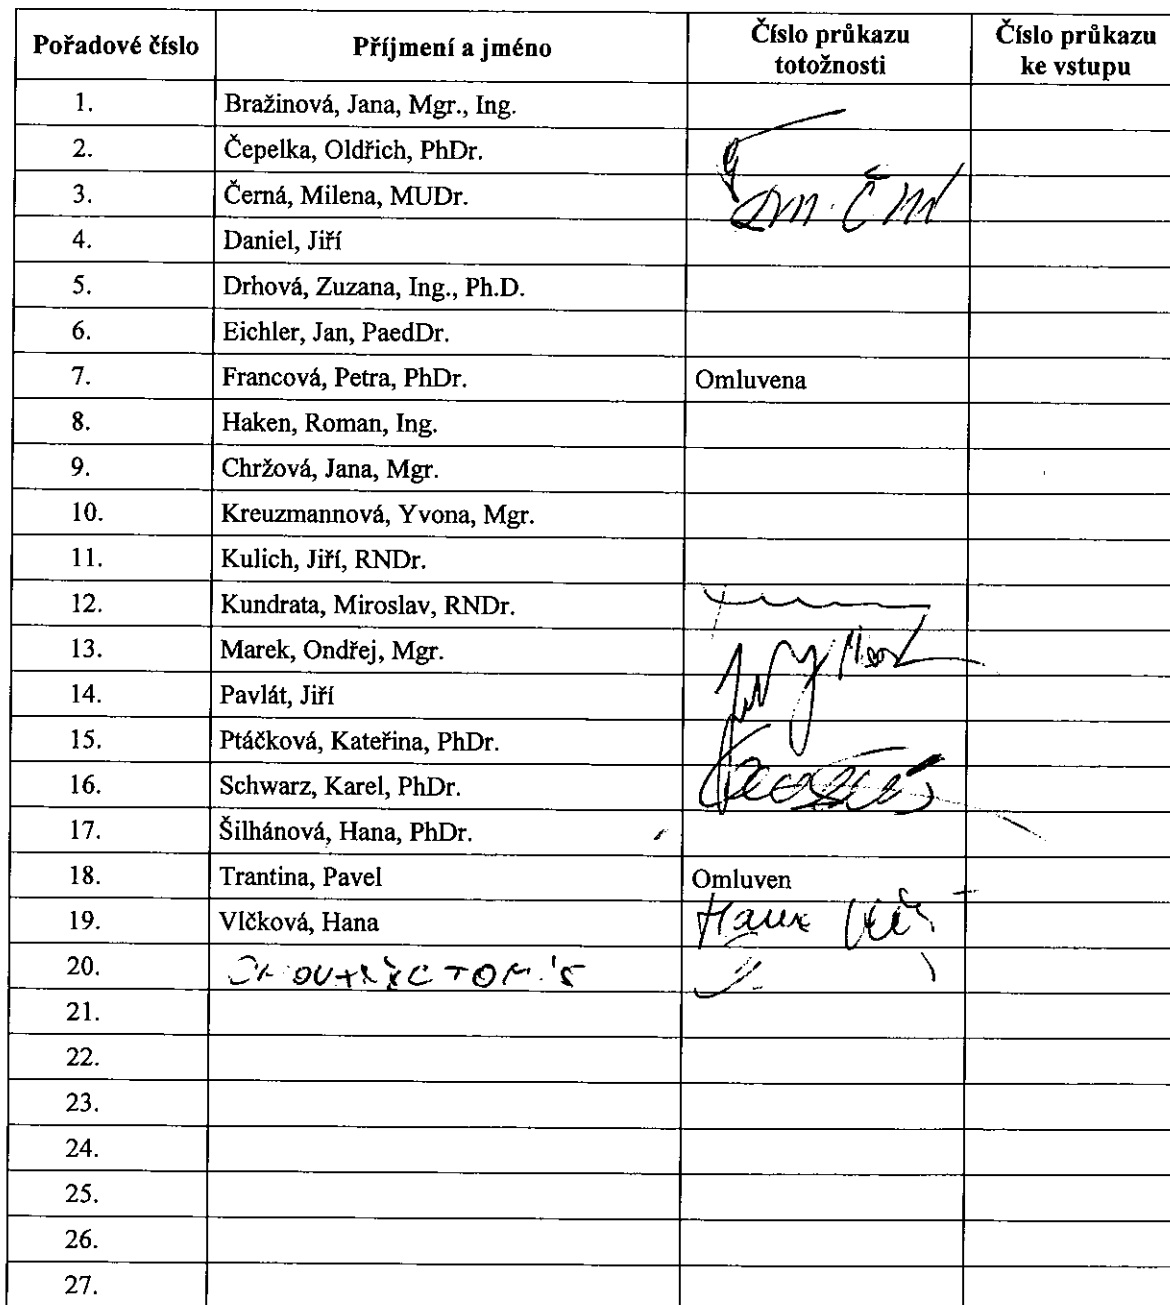 Pořadové číslo Příjmení a jméno Číslo průkazu totožnosti Číslo průkazu ke vstupu
1. Bražinová, Jana, Mgr., Ing.
2. Čepelka, Oldřich, PhDr.
3. Černá, Milena, MUDr.
4. Daniel, Jiří
5. Drhová, Zuzana, Ing., Ph.D.
6. Eichler, Jan, PaedDr.
7. Francová, Petra, PhDr. Omluvena
8. Haken, Roman, Ing.
9. Chržová, Jana, Mgr.
10. Kreuzmannová, Yvona, Mgr.
11. Kulich, Jiří, RNDr.
12. Kundrata, Miroslav, RNDr.
13. Marek, Ondřej, Mgr.
14. Pavlát, Jiří
15. Ptáčková, Kateřina, PhDr.
16. Schwarz, Karel, PhDr.
17. Šilhánová, Hana, PhDr.
18. Trantina, Pavel Omluven
19. Vlčková, Hana
20.
21.
22.
23.
24.
25.
26.
27.